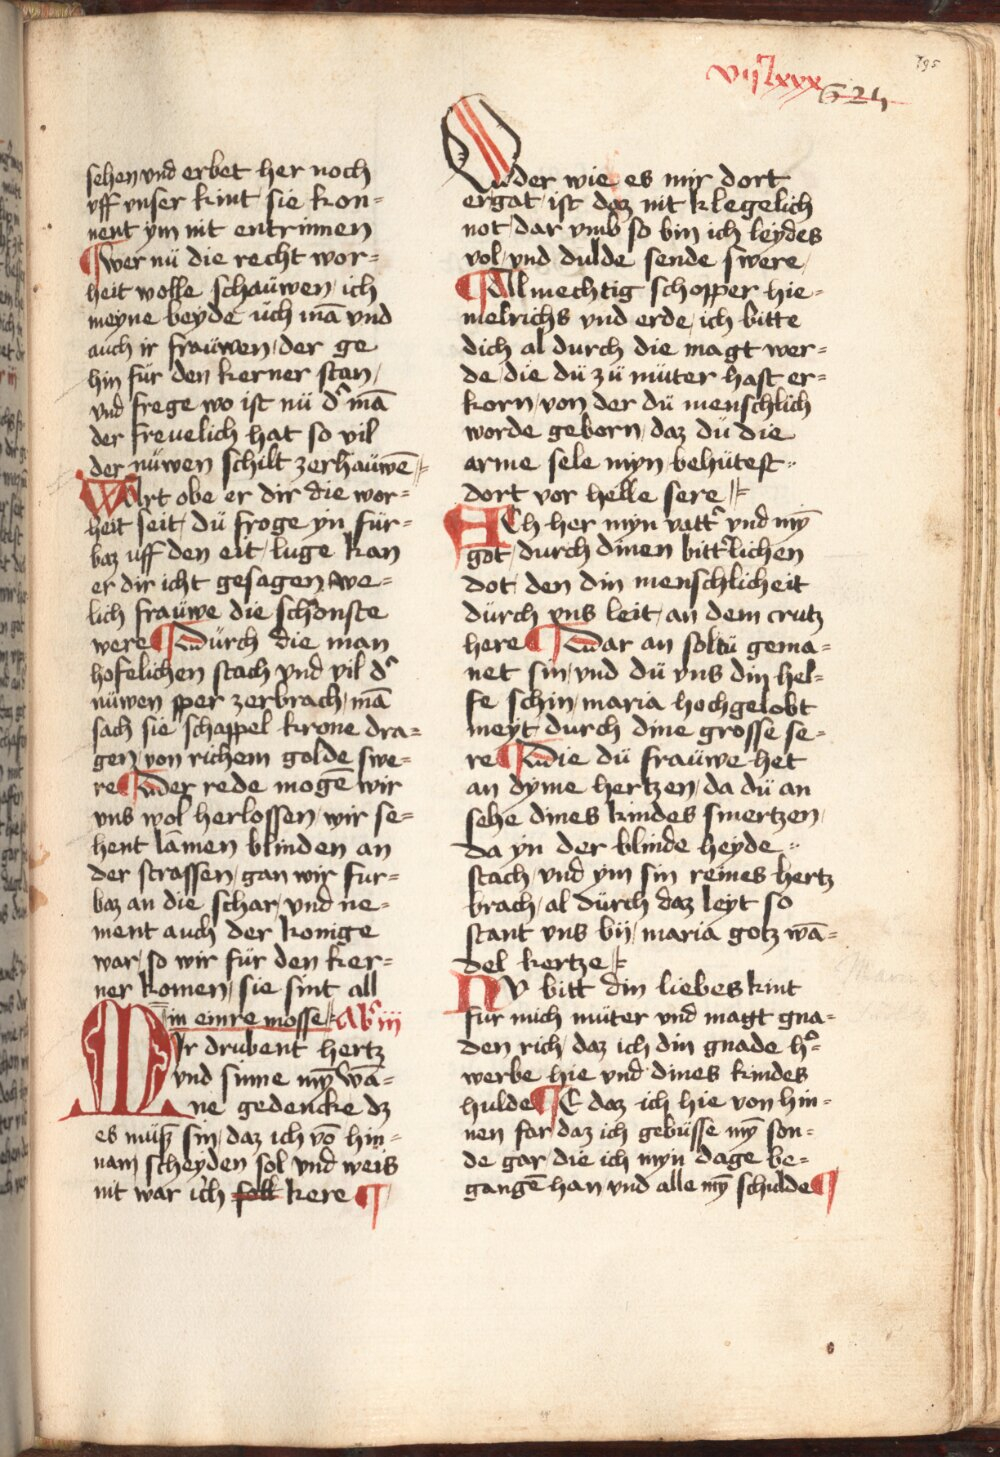 795
vijᶜlxxx
624
sehen vnd erbet her noch
vff vnser kint sie kon=
nent ym nit entrinnen
¶ wer nü die recht wor=
heit wolle schaüwen / ich
meyne beyde üch mā vnd
auch ir fraüwen / der ge
hin für den kerner stan /
vnd frege wo ist nü d' mā
der freuelich hat so vil
der nüwen schilt zerhaüwē
Wart obe er dir die wor=
heit seit / dü froge yn für=
baz uff den eit / luge kan
er dir icht gesagen / we=
lich fraüwe die schonste
were ¶ Dürch die man
hofelichen stach vnd vil d'
nüwen sper zerbrach / mā
sach sie schappel krone dra=
gen / von richem golde swe=
re ¶ Der rede mogē wir
vns wol herlossen / wir se=
hent lāmen blinden an
der strassen / gan wir fur=
baz an die schar / vnd ne=
ment auch der konige
war / so wir für den ker=
ner komen / sie sint all
in einre mosse Ab' iij
Mir drubent hertz
vnd sinne mȳ wā=
ne gedencke dz
es müß sin / daz ich vō hin=
nam scheyden sol vnd weis
nit war ich soll kere ¶
Oder wie es mir dort
ergat / ist daz nit klegelich
not / dar vmb so bin ich leydes
vol / vnd dulde sende swere /
¶ Almechtig schopper hie=
melrichs vnd erde / ich bitte
dich al durch die magt wer=
de / die dü zü müter hast er=
korn / von der dü menschlich
worde geborn / daz dü die
arme sele myn behütest
dort vor helle sere
Ach her myn vatt' vnd mȳ
got / durch dinen bitt'lichen
dot / den din menschlicheit
dürch vns leit / an dem crutz
here ¶ Dar an soltü gema=
net sin / vnd dü vns din hel=
fe schin / maria hochgelobt
meyt / durch dine grosse se=
re ¶ Die dü fraüwe het
an dyme hertzen / da dü an
sehe dines kindes smertzen /
da yn der blinde heyde
stach / vnd ym sin reines hertz
brach / al dürch daz leyt so
stant vns bij / maria gotz wā=
del kertze
Nv bitt din liebes kint
fur mich müter vnd magt gna=
den rich / daz ich din gnade h'=
werbe hie vnd dines kindes
hulde ¶ E daz ich hie von hin=
nen far / daz ich gebüsse mȳ son=
de gar / die ich myn dage be=
gangē han vnd alle mȳ schulde ¶